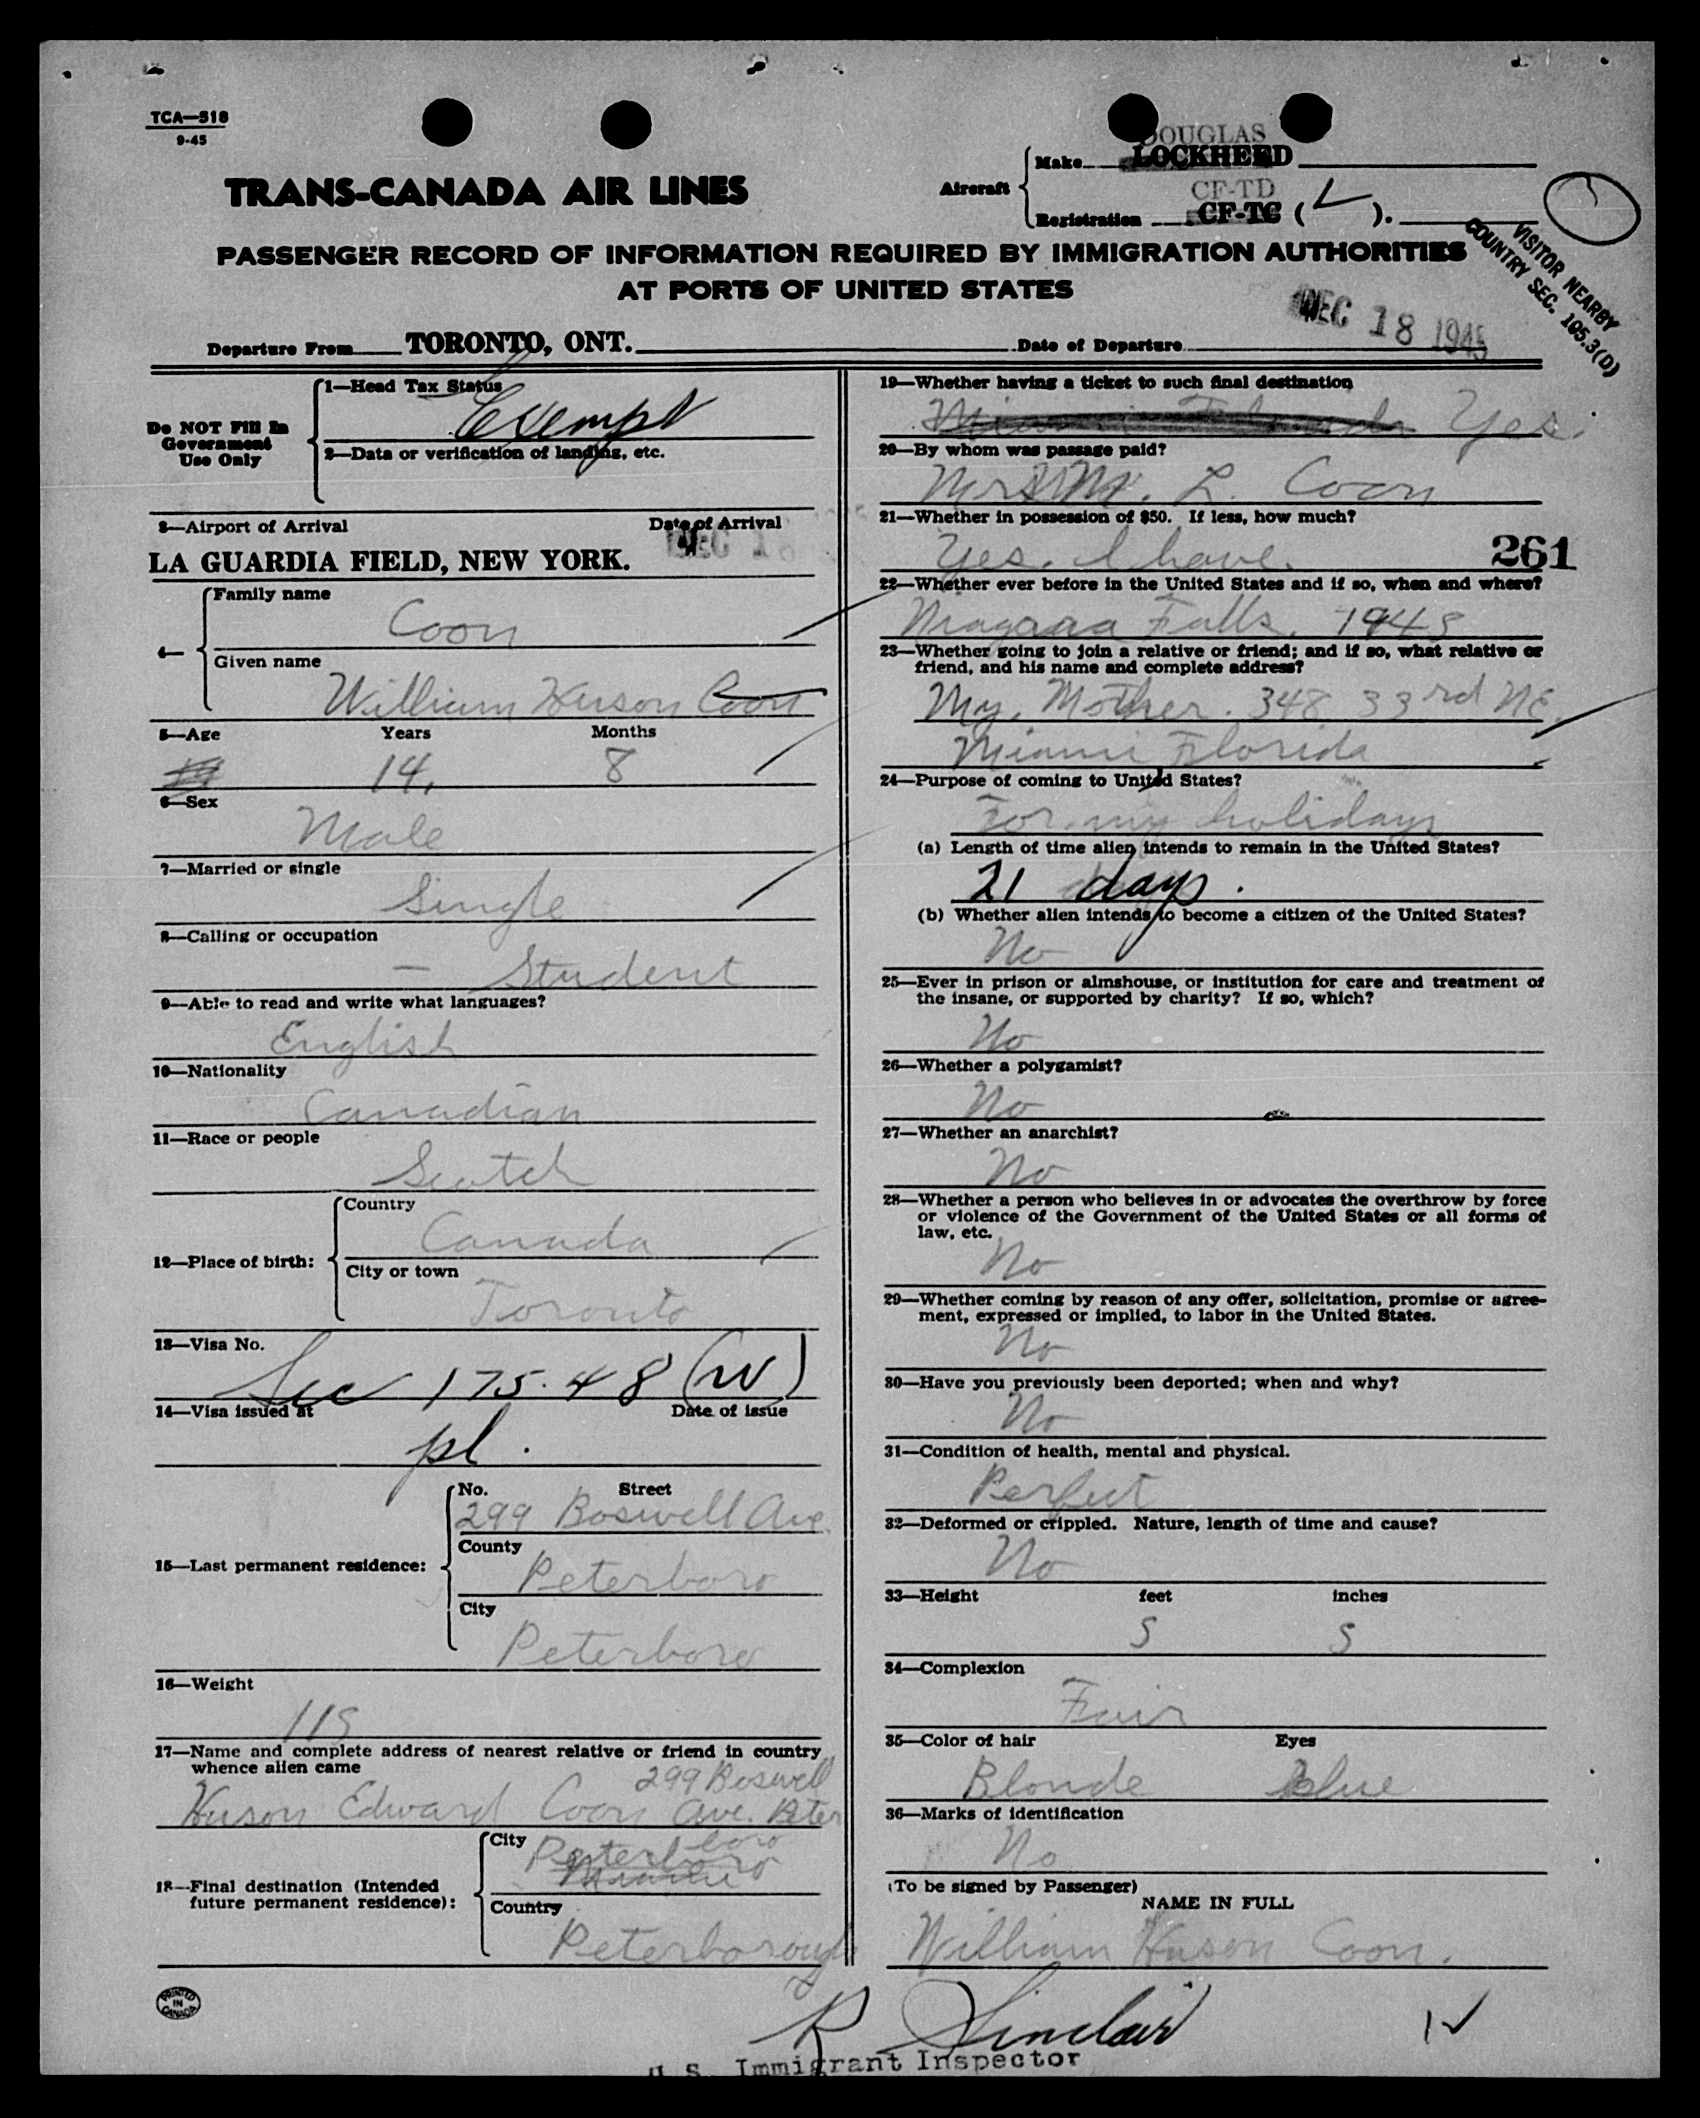 TCA—518
9-45
TRANS-CANADA AIR LINES
Aircraft
Make
DOUGLAS
LOCKHEED
Registration
CF-TD
CF-TC ( L ).
VISITOR NEARBY
COUNTRY SEC. 105.3(D)
PASSENGER RECORD OF INFORMATION REQUIRED BY IMMIGRATION AUTHORITIES
AT PORTS OF UNITED STATES
Departure From TORONTO, ONT. Date of Departure DEC 18 1945
Do NOT Fill In
Government
Use Only
1—Head Tax Status
Exempt
2—Data or verification of landing, etc.
3—Airport of Arrival Date of Arrival
LA GUARDIA FIELD, NEW YORK. DEC 18
4—
Family name
Coon
Given name
William Huson Coon
5—Age Years Months
14, 8
6—Sex
Male
7—Married or single
Single
8—Calling or occupation
— Student
9—Able to read and write what languages?
English
10—Nationality
Canadian
11—Race or people
Scotch
12—Place of birth:
Country
Canada
City or town
Toronto
13—Visa No.
Sec 175.48 (W)
14—Visa issued at Date of issue
pl.
15—Last permanent residence:
No. Street
299 Boswell Ave.
County
Peterboro
City
Peterboro
16—Weight
115
17—Name and complete address of nearest relative or friend in country
whence alien came
299 Boswell
Huson Edward Coon Ave. Peter
boro
18—Final destination (Intended
future permanent residence):
City
Peterboro
Miami
Country
Peterborough
19—Whether having a ticket to such final destination
Yes.
20—By whom was passage paid?
Mrs M. L. Coon
21—Whether in possession of $50. If less, how much?
Yes. I have. 261
22—Whether ever before in the United States and if so, when and where?
Niagara Falls. 1945
23—Whether going to join a relative or friend; and if so, what relative or
friend, and his name and complete address?
My. Mother. 348 33rd NE.
Miami Florida
24—Purpose of coming to United States?
For my holidays
(a) Length of time alien intends to remain in the United States?
21 days.
(b) Whether alien intends to become a citizen of the United States?
No
25—Ever in prison or almshouse, or institution for care and treatment of
the insane, or supported by charity? If so, which?
No
26—Whether a polygamist?
No
27—Whether an anarchist?
No
28—Whether a person who believes in or advocates the overthrow by force
or violence of the Government of the United States or all forms of
law, etc.
No
29—Whether coming by reason of any offer, solicitation, promise or agree-
ment, expressed or implied, to labor in the United States.
No
30—Have you previously been deported; when and why?
No
31—Condition of health, mental and physical.
Perfect
32—Deformed or crippled. Nature, length of time and cause?
No
33—Height feet inches
5 5
34—Complexion
Fair
35—Color of hair Eyes
Blonde blue
36—Marks of identification
No
(To be signed by Passenger)
NAME IN FULL
William Huson Coon.
PRINTED
IN
CANADA
R Sinclair
U.S. Immigrant Inspector